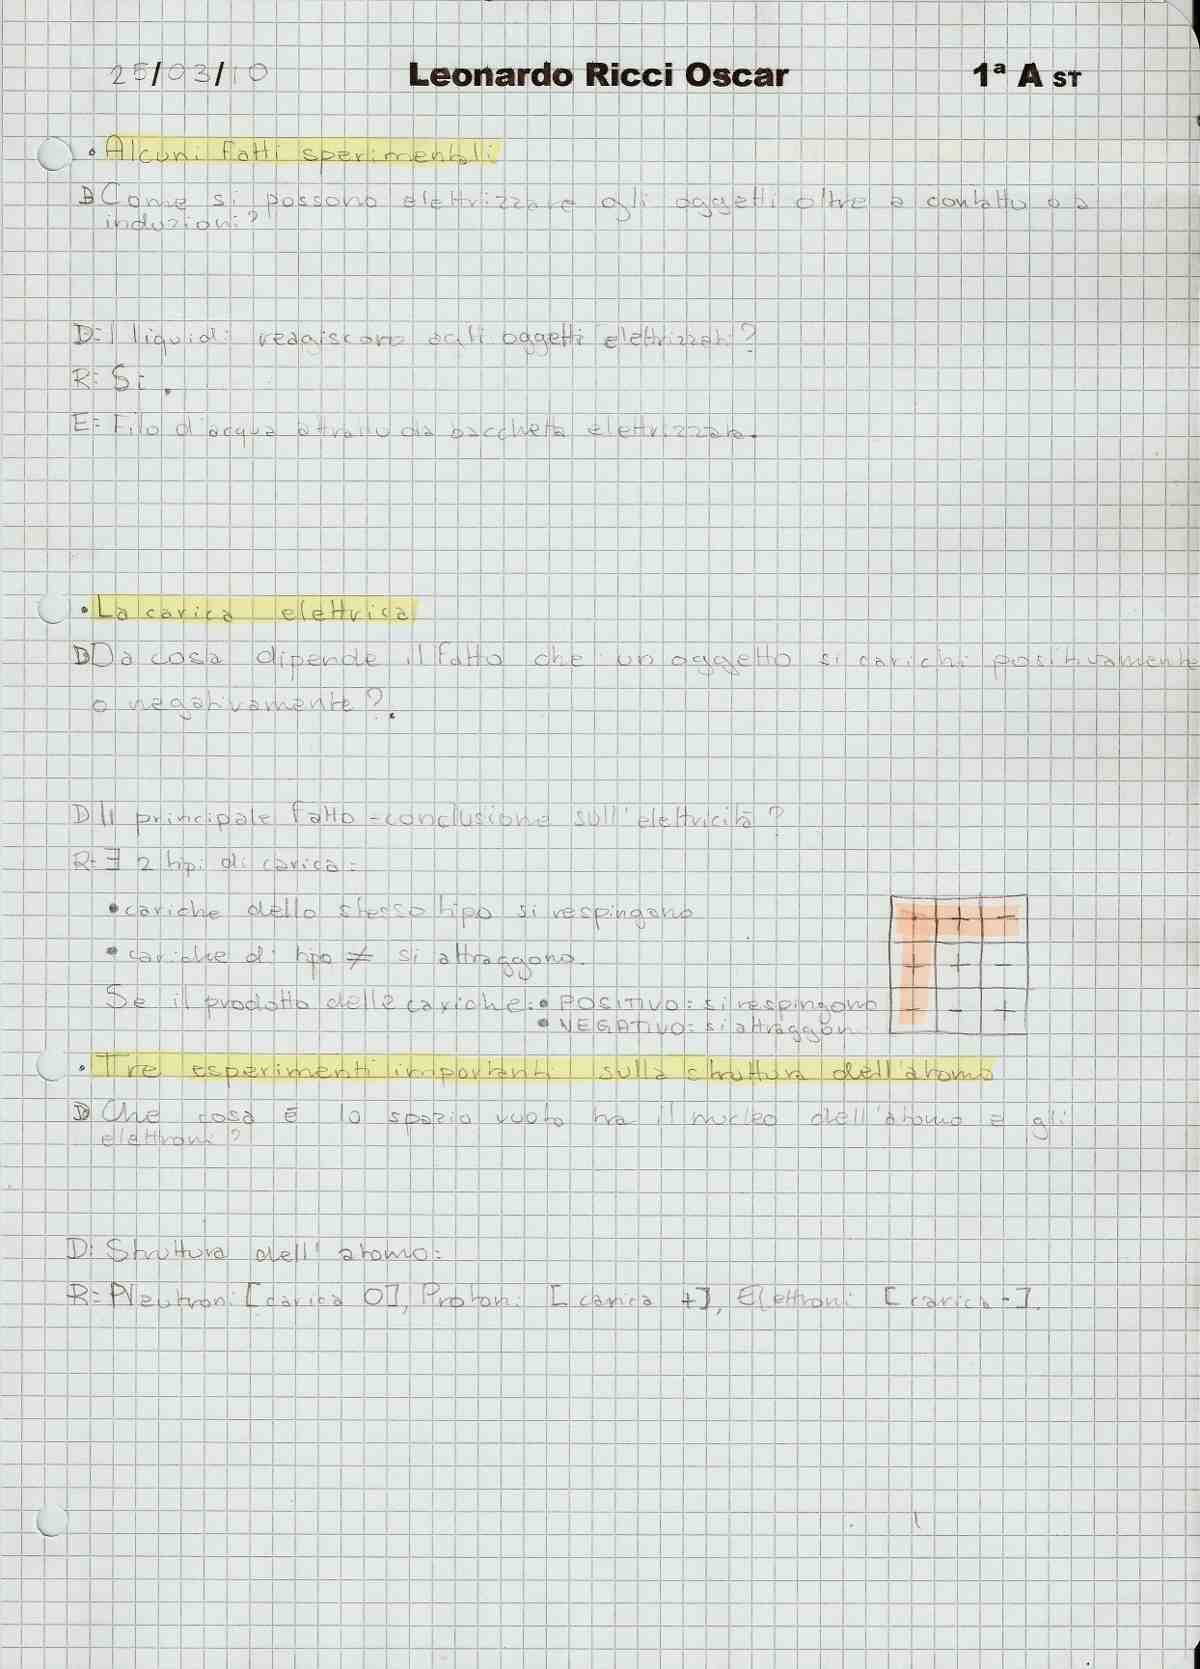 25/03/10 Leonardo Ricci Oscar 1ª A ST
• Alcuni fatti sperimentali
D Come si possono elettrizzare gli oggetti oltre a contatto o a
induzioni?
D: I liquidi reagiscono agli oggetti elettrizzati?
R: Si.
E: Filo d'acqua attratto da bacchetta elettrizzata.
• La carica elettrica
D Da cosa dipende il fatto che un oggetto si carichi positivamente
o negativamente?.
D Il principale fatto-conclusione sull'elettricità?
R: ∃ 2 tipi di carica:
• cariche dello stesso tipo si respingono
• cariche di tipo ≠ si attraggono.
Se il prodotto delle cariche: • POSITIVO: si respingono
• NEGATIVO: si attraggon
+ + -
+ + -
- - +
• Tre esperimenti importanti sulla struttura dell'atomo
D Che cosa è lo spazio vuoto tra il nucleo dell'atomo e gli
elettroni?
D: Struttura dell'atomo:
R: Neutroni [carica 0], Protoni [carica +], Elettroni [carica -].